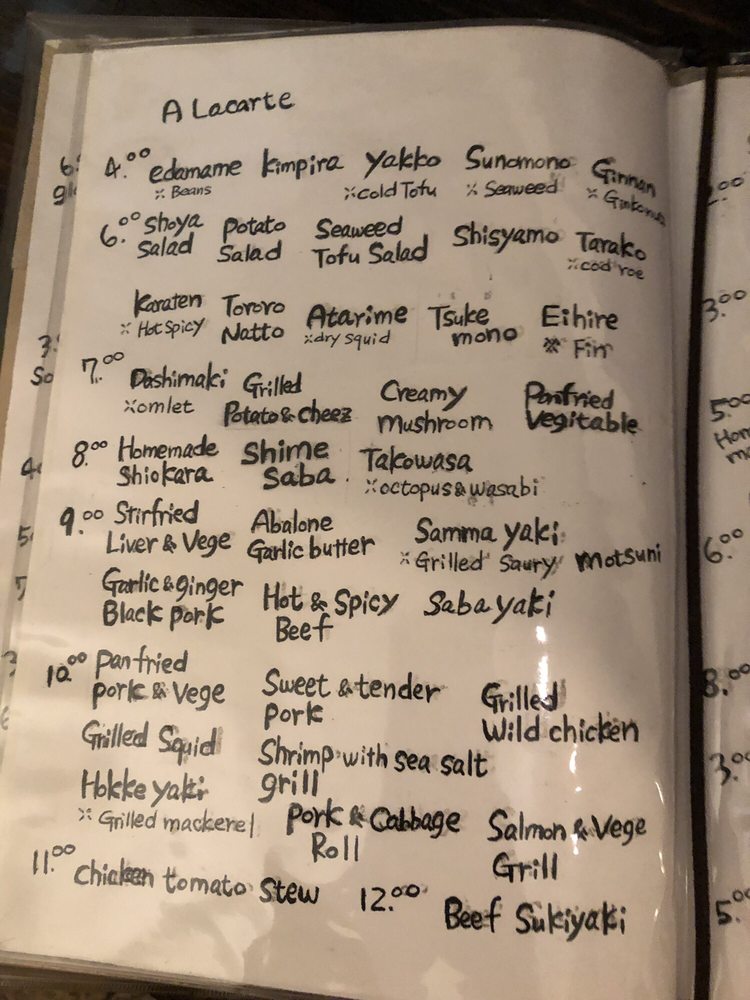 A Lacarte
4.00 edamame kimpira yakko Sunomono Ginnan
※ Beans ※cold Tofu ※ Seaweed
6.00 Shoya Potato Seaweed Shisyamo Tarako
Salad Salad Tofu Salad ※cod roe
Karaten Tororo Atarime Tsuke Eihire
※ Hot Spicy Natto ※dry squid mono ※ Fin
7.00 Dashimaki Grilled Creamy Panfried
※omlet Potato & cheez mushroom Vegitable
8.00 Homemade Shime Takowasa
Shiokara Saba ※octopus & wasabi
9.00 Stirfried Abalone Samma yaki
Liver & Vege Garlic butter ※Grilled Saury motsuni
Garlic & ginger Hot & Spicy Saba yaki
Black pork Beef
10.00 panfried Sweet & tender Grilled
pork & Vege pork Wild chicken
Grilled Squid Shrimp with sea salt
Hokke yaki grill
※ Grilled mackerel Pork & Cabbage Salmon & Vege
Roll Grill
11.00 chicken tomato stew 12.00 Beef Sukiyaki
3.00
5.00
6.00
8.00
3.00
5.00